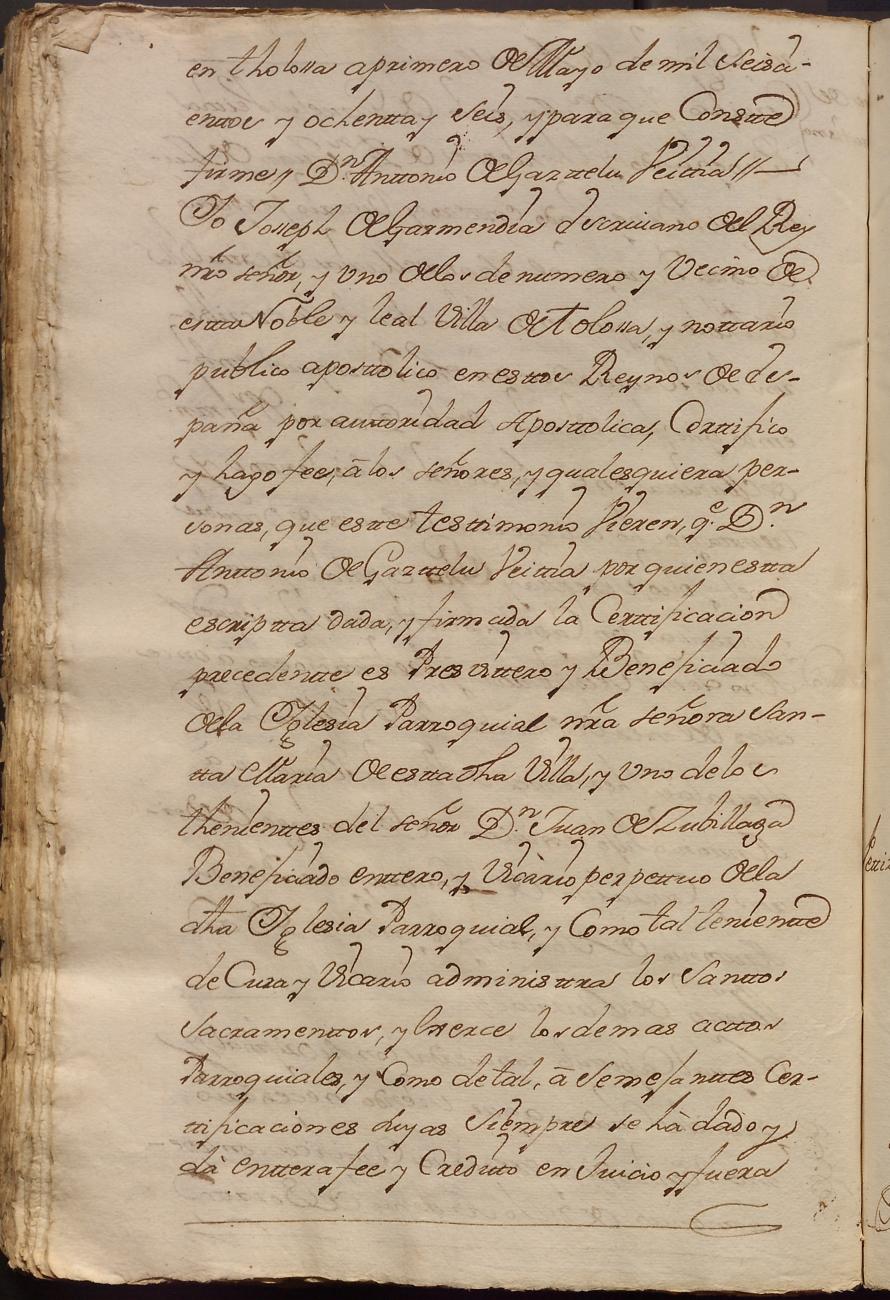 en tholossa a primero de Mayo de mil Seisçi-
enttos y ochentta y seis, y para que Constte
firme // Dn. Anttonio de Gazttelu Veittia //
Yo Joseph de Garmendia escriuano del Rey
nrõ señor, y vno de los de numero y Vecino de
estta Noble y leal Villa de tolossa, y nottario
publico aposttolico en esttos Reynos de es-
paña por auttoridad Aposttolica, Certtifico
y hago fee, à los señores, y qualesquiera per-
sonas, que estte testtimonio Vieren, qe. Dn.
Anttonio de Gazttelu Veittia por quien estta
escriptta dada, y firmada la Certtificacion
precedentte es Presvittero y Beneficiado
de la Yglesia Parroquial nrã señora San-
tta Maria de estta dha Villa, y vno de los
thenienttes del señor Dn. Juan de Zubillaga
Beneficiado enttero, y Vicario perpettuo de la
dha Yglesia Parroquial, y Como tal tenientte
de Cura y Vicario administtra los Santtos
Sacramenttos, y exerce los demas acttos
Parroquiales, y Como de tal, à Semejanttes Cer-
ttificaciones suyas Siempre se hà dado y
dà enttera fee y Creditto en Juicio y fuera